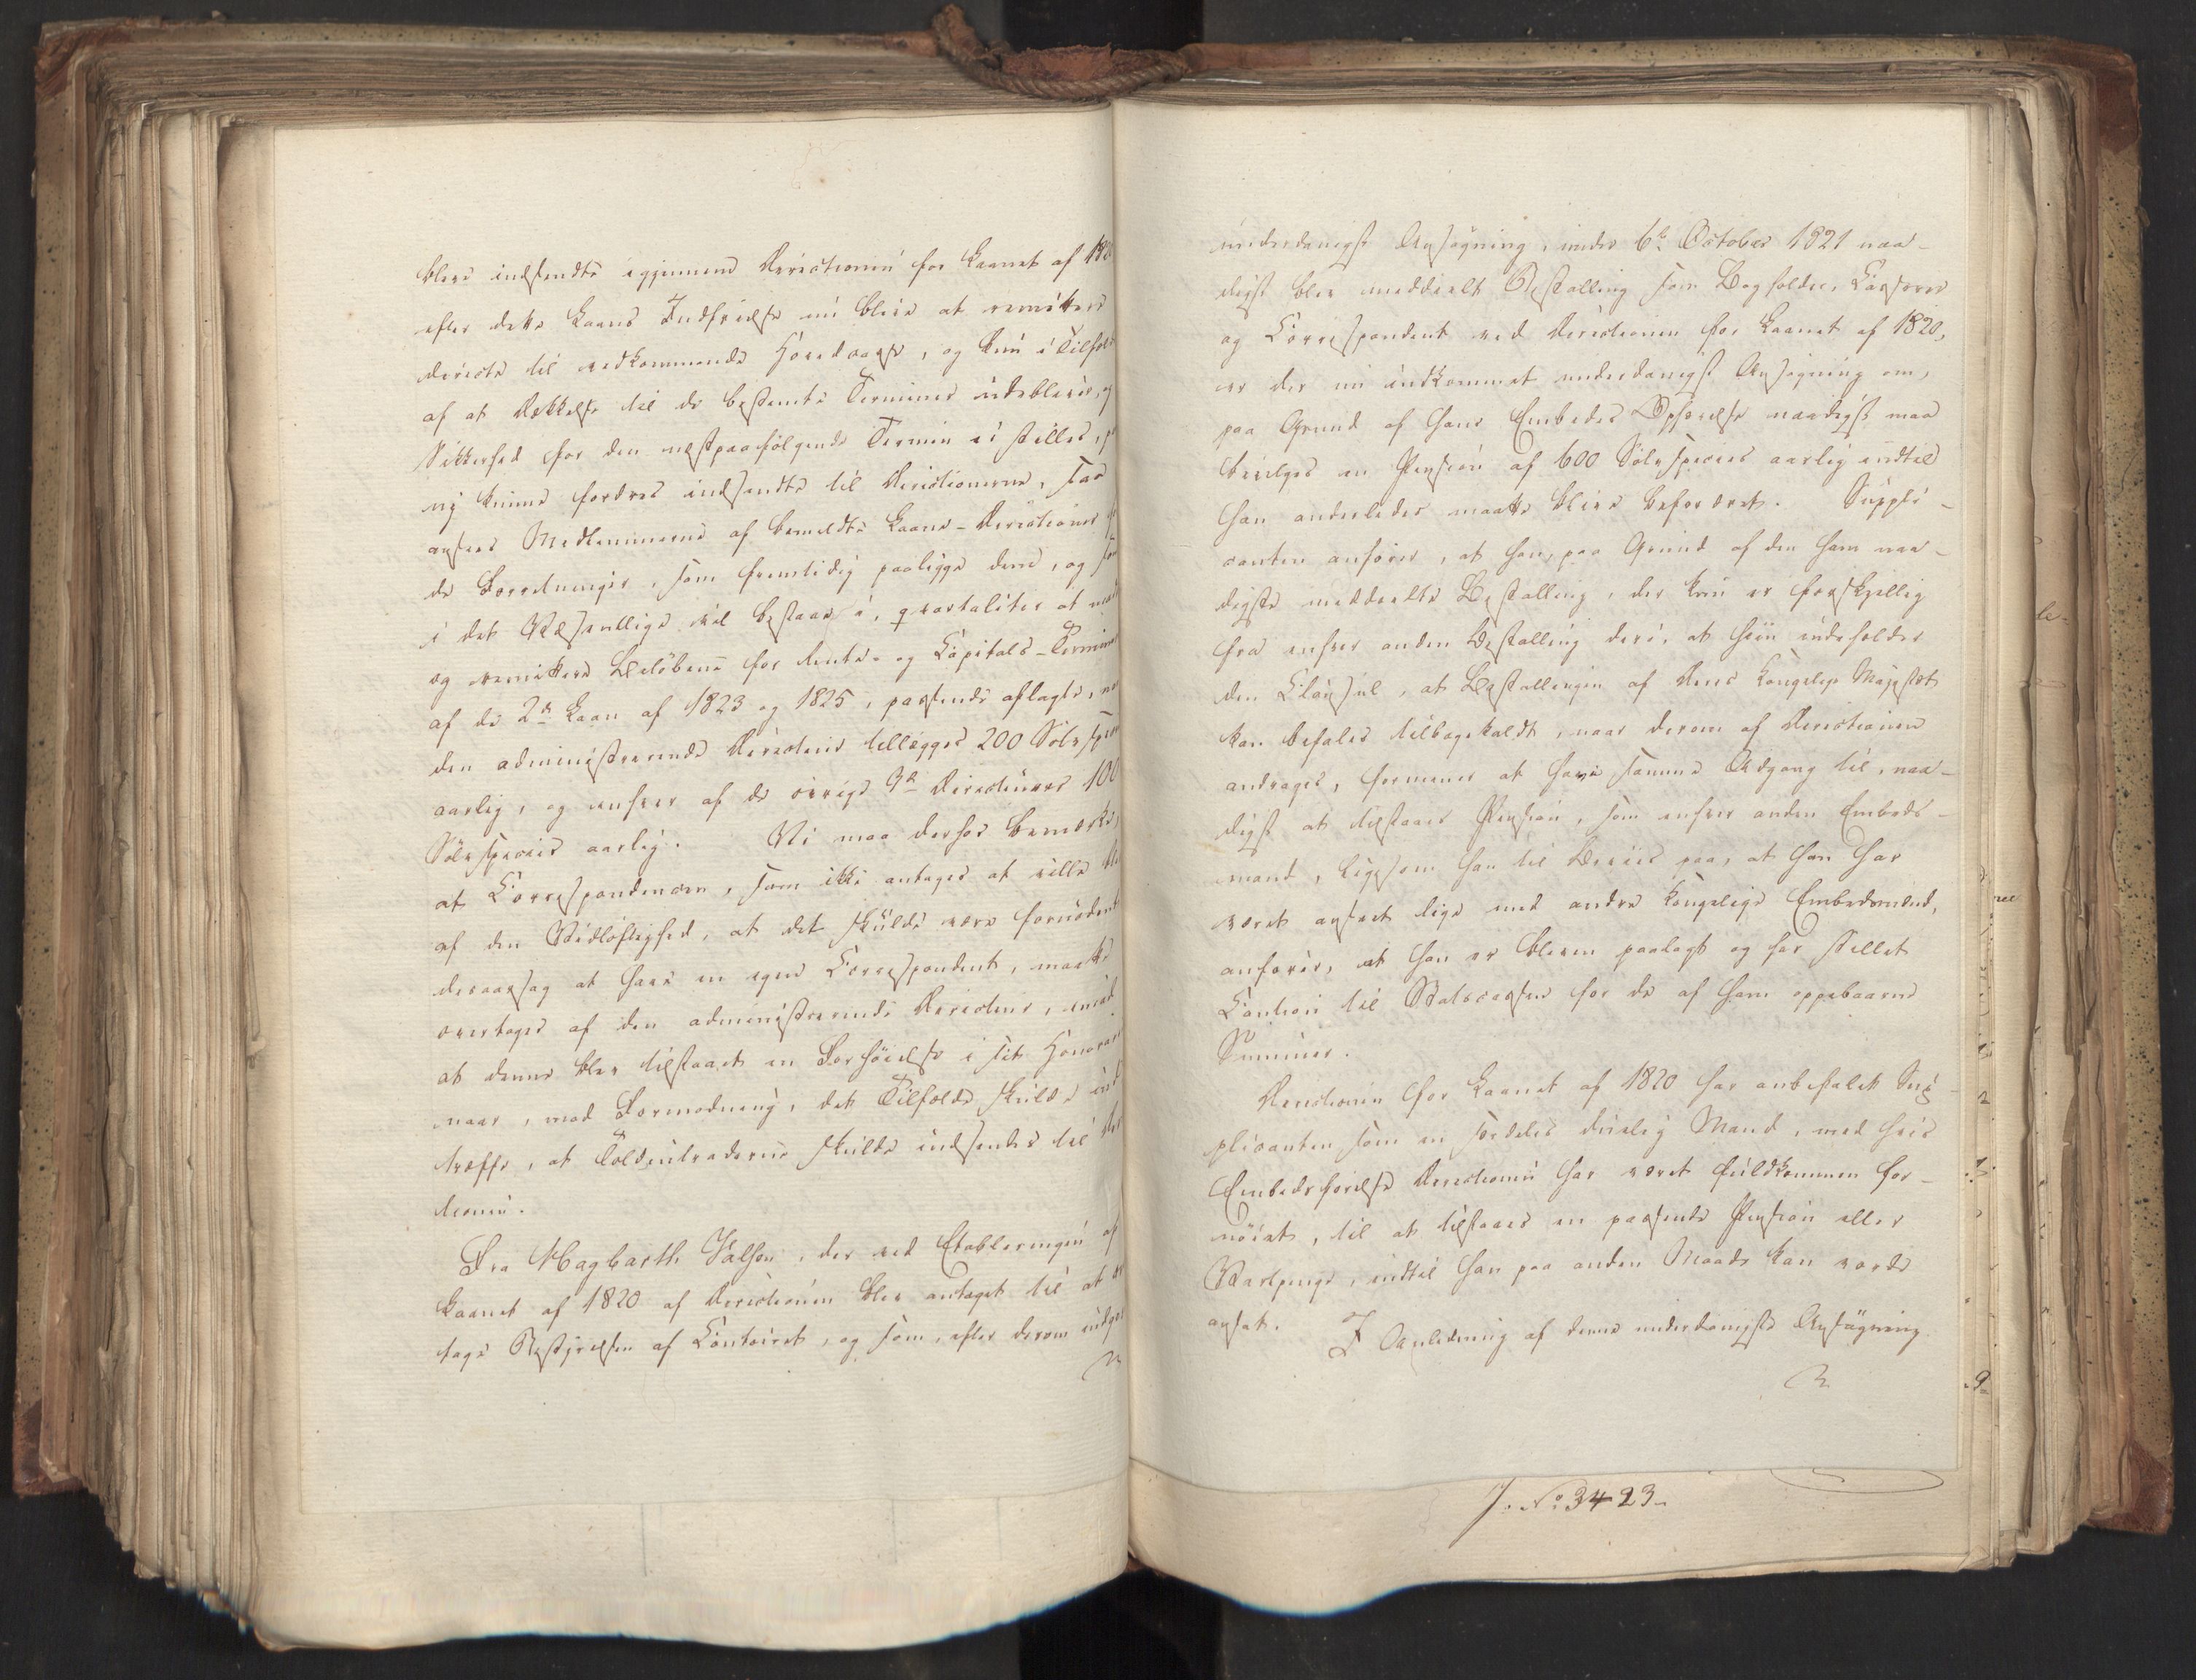 blive indsendte igjennem Directionen for Laanet af 18
efter dette Laans Indfrielse nu blive at remittere
directe til vedkommende Hovedcasse, og kun i Tilfælde
af at Dækkelse til de bestemte Terminer udebliver, og
Sikkerhed for den næstpaafølgende Termin ei stilles,
vij kunne fordres indsendte til Directionerne, saa
ansees Medlemmerne af bemeldte Laane-Directioner
de Forretninger, som fremtidig paaligge dem, og som
i det Væsentlige vil bestaae i, qvartaliter at
og remittere Beløbene for Rente- og Capitals-Terminer
af de 2de Laan af 1823 og 1825, passende aflagte, naar
den administrerende Directeur tillægges 200 Sølvspecier
aarlig, og enhver af de øvrige 3de Directeurer 100
Sølvspecier aarlig. Vi maae derhos bemærke,
at Correspondencen, som ikke antages at ville blive
af den Vidløftighed, at det skulde være fornødent
desaarsag at have en egen Correspondent, maatte
overtages af den administrerende Directeur, imod
at denne blev tilstaaet en Forhøielse i sit Honorar
naar, mod Formodning, det Tilfælde skulde ind
træffe, at Toldintraderne skulde indsendes til Di
tionen.
Fra Hagbarth Falsen, der ved Etableringen af
Laanet af 1820 af Directionen blev antaget til at
tage Bestyrelsen af Contoiret, og som, efter derom indgi
underdanigst Ansøgning, under 6te October 1821 naa-
digst blev meddeelt Bestalling som Bogholder, Casserer
og Correspondent ved Directionen for Laanet af 1820,
er der nu indkommet underdanigst Ansøgning om,
paa Grund af hans Embedes Ophørelse naadigst maa
bevilges en Pension af 600 Sølvspecier aarlig indtil
han anderledes maatte blive befordret. Suppli-
canten anfører, at han, paa Grund af den ham naa-
digste meddeelte Bestalling, der kun er forskjellig
fra enhver anden Bestalling deri, at hiin indeholder
den Clausul, at Bestallingen af Deres Kongelige Majestæt
kan befales tilbagekaldt, naar derom af Directionen
andrages, formener at have samme Adgang til, naa-
digst at tilstaaes Pension, som enhver anden Embeds-
mand, ligesom han til Beviis paa, at han har
været anseet lige med andre Kongelige Embedsmænd,
anfører, at han er bleven paalagt og har stillet
Caution til Statscassen for de af ham oppebaarne
Summer.
Directionen for Laanet af 1820 har anbefalet Sup-
plicanten som en særdeles duelig Mand, med hvis
Embedsførelse Directionen har været fuldkommen for-
nøiet, til at tilstaaes en passende Pension eller
Vartpenge, indtil han paa anden Maade kan vorde
ansat. I Anledning af denne underdanigste Ansøgning
J. No 3423.